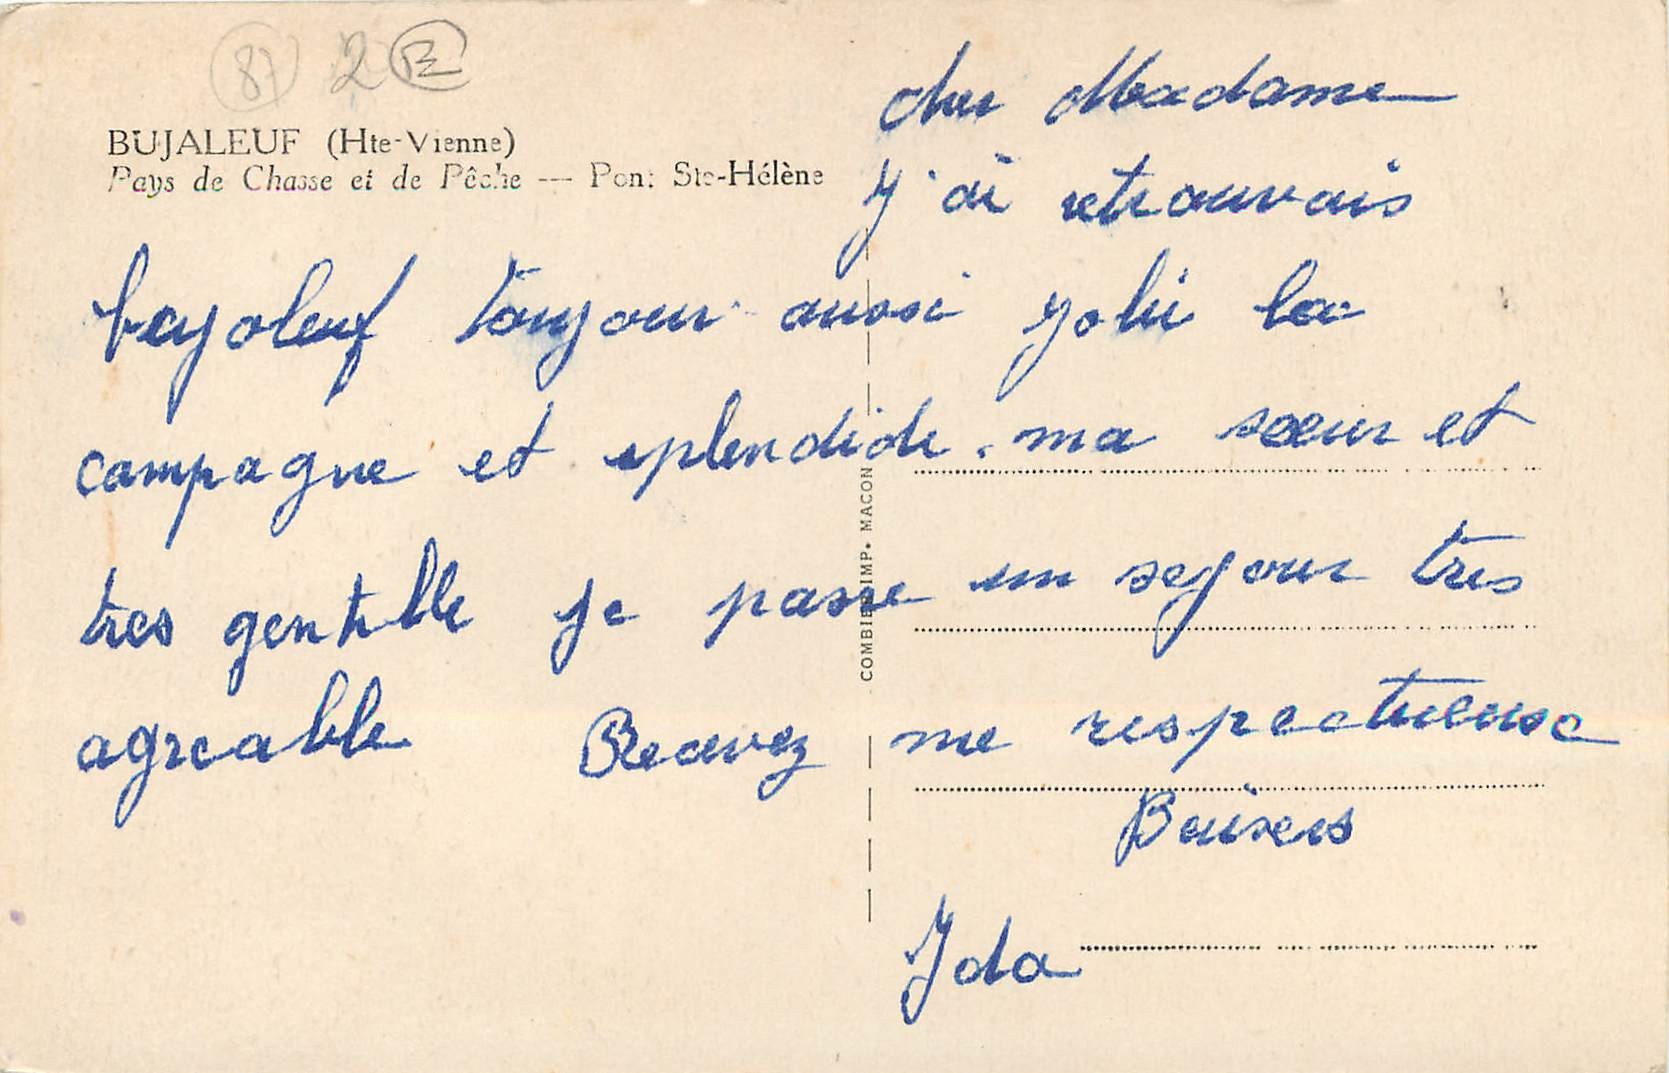 87 2
BUJALEUF (Hte-Vienne)
Pays de Chasse et de Pêche -- Pont Ste-Hélène
cher Madame
J'ai retrouvais
bujaleuf toujour aussi joli la
campagne et splendide. ma sœur et
tres gentille je passe un sejour tres
agreable Recevez me respectueuse
Baisers
Ida
COMBIER IMP. MACON